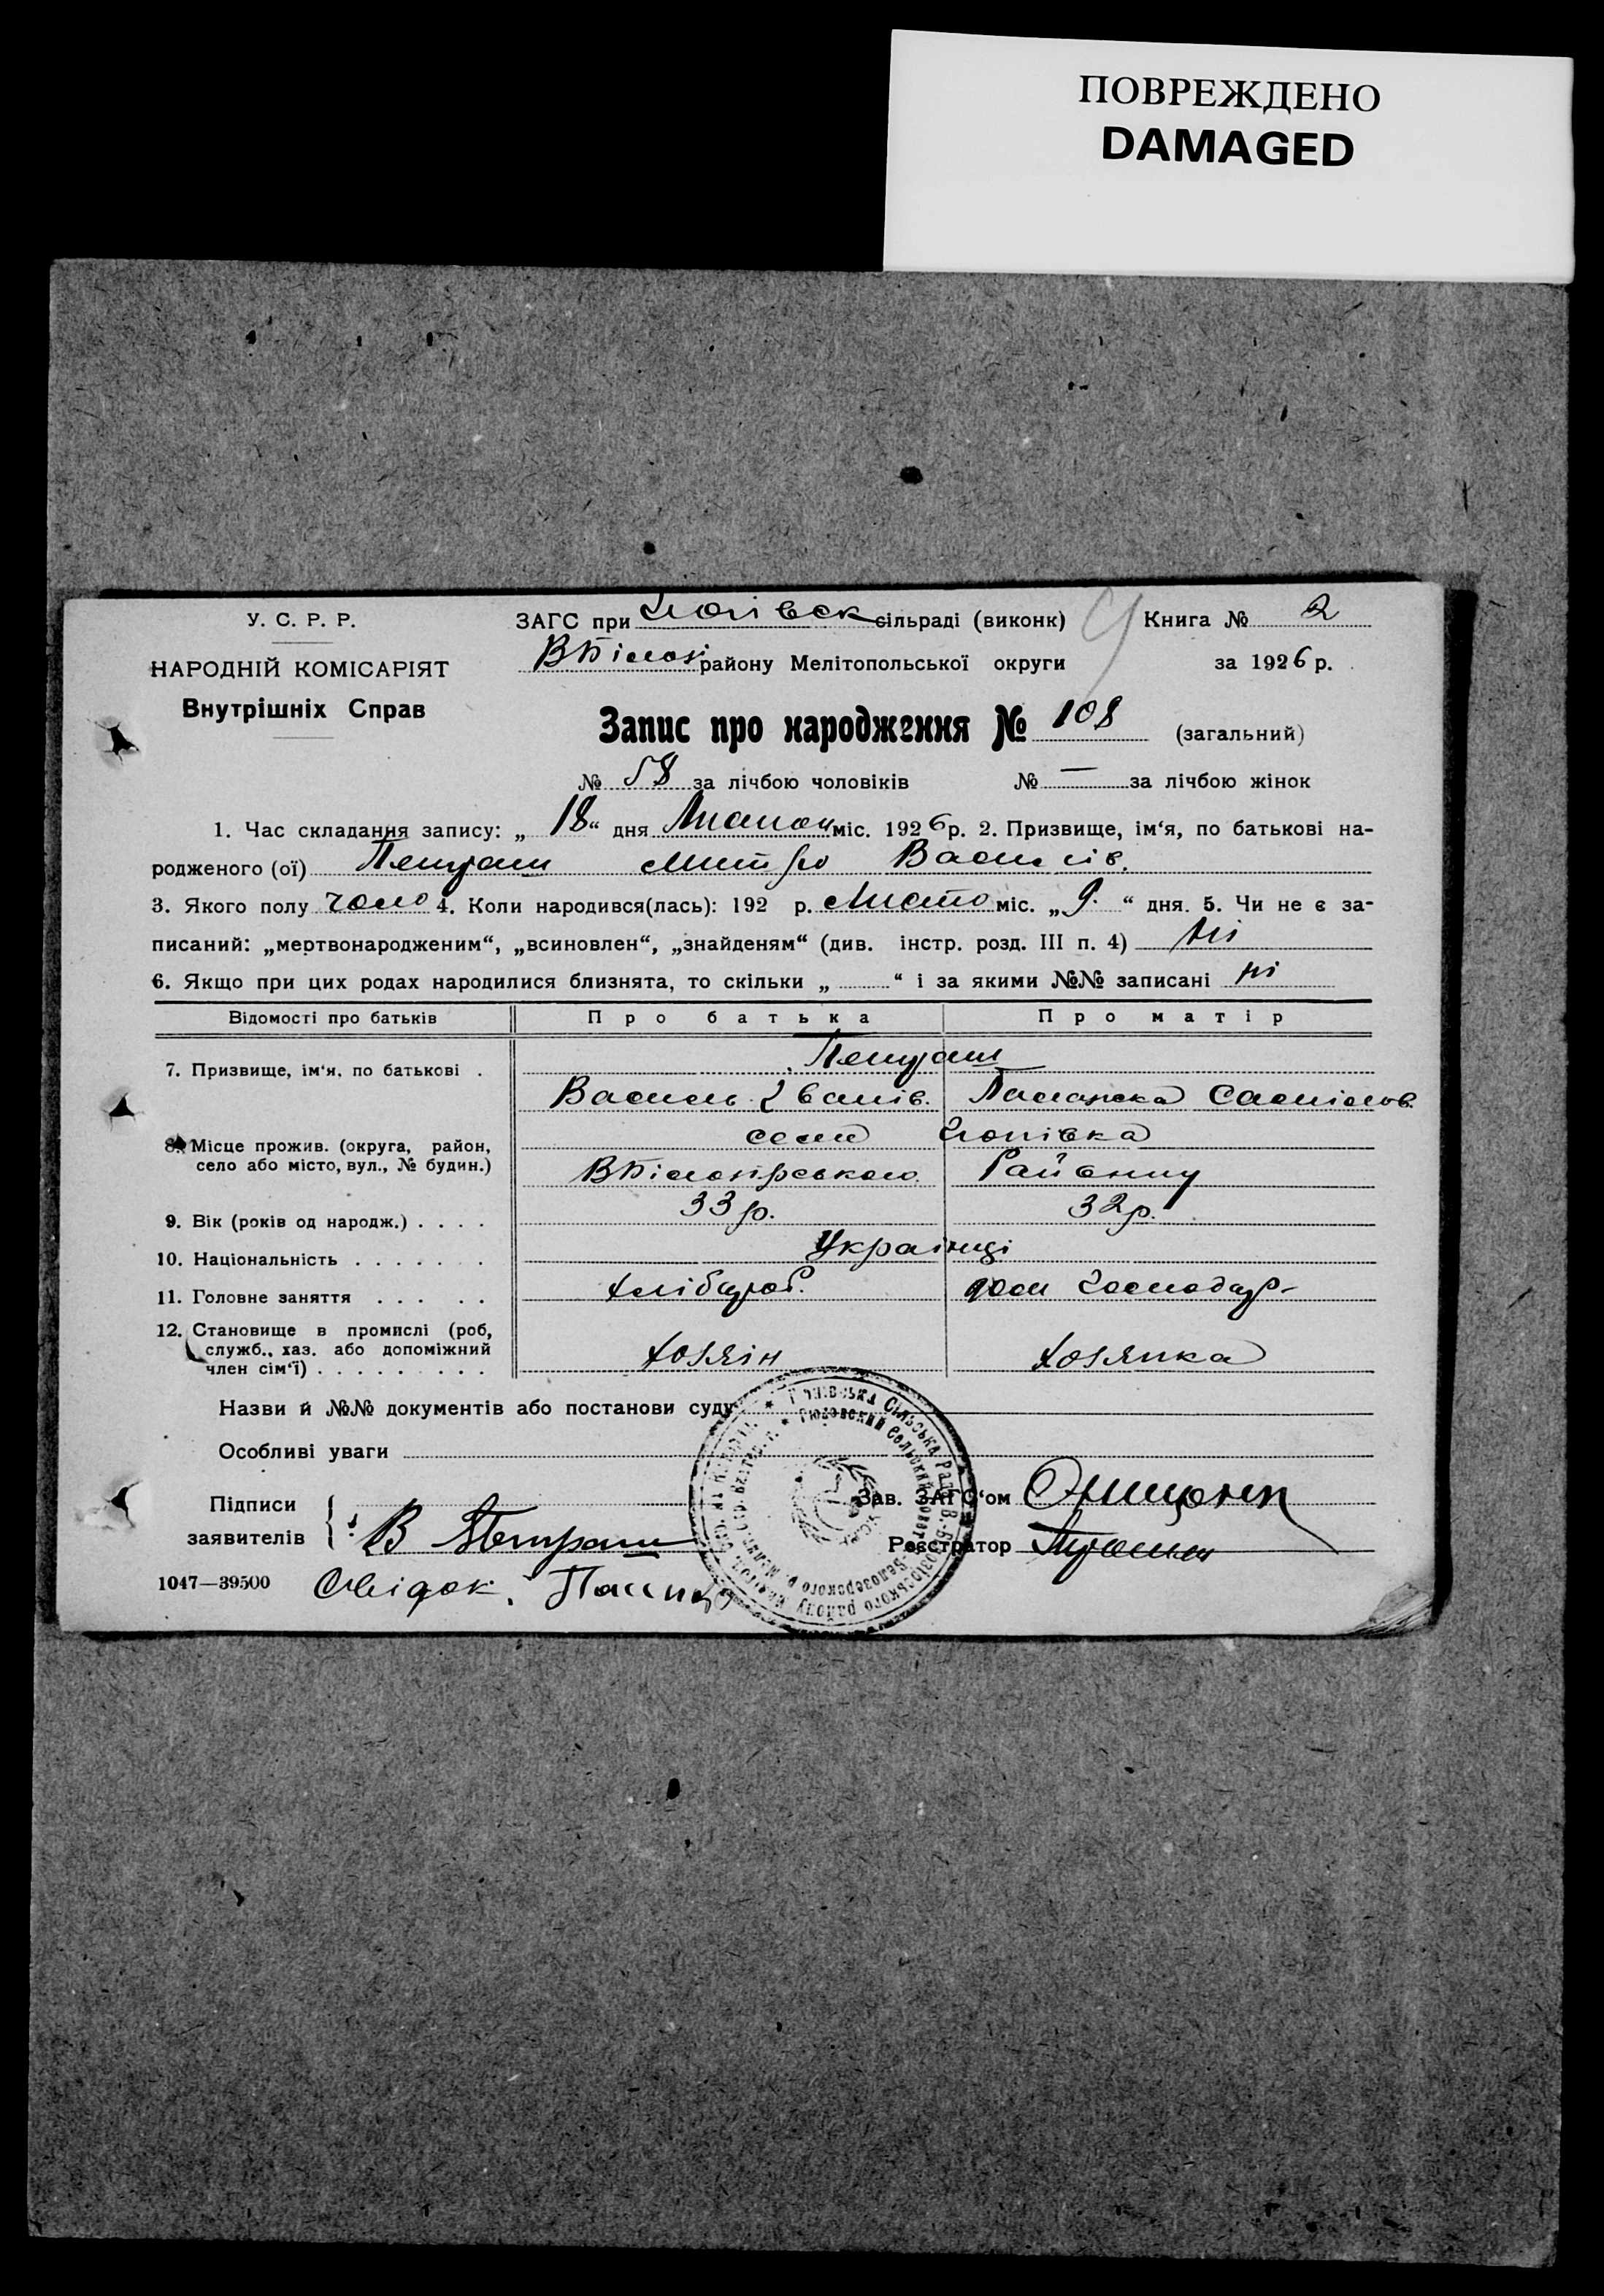 ПОВРЕЖДЕНО
DAMAGED
У. С. Р. Р.
НАРОДНІЙ КОМІСАРІЯТ
Внутрішніх Справ
ЗАГС при сільраді (виконк)
ВБілозі району Мелітопольської округи
Книга № 2
за 1926 р.
Запис про народження № 108 (загальний)
№ 58 за лічбою чоловіків № — за лічбою жінок
1. Час складання запису: „ 18 “ дня міс. 1926 р. 2. Призвище, ім‘я, по батькові на-
родженого (ої) Петраш Митро Василів.
3. Якого полу чоло 4. Коли народився(лась): 192 р. Листо міс. „ 9. “ дня. 5. Чи не є за-
писаний: „мертвонародженим“, „всиновлен“, „знайденям“ (див. інстр. розд. III п. 4) Ні
6. Якщо при цих родах народилися близнята, то скільки „ “ і за якими №№ записані ні
Відомості про батьків Про батька Про матір
7. Призвище, ім‘я, по батькові . Петраш
Василь Іванів. Палажка Самійлов.
8. Місце прожив. (округа, район, село або місто, вул., № будин.) село Гюнівка
ВБілозірського Району
9. Вік (років од народж.) . . . . 33 р. 32 р.
10. Національність . . . . . . . Українці
11. Головне заняття . . . . . Хлібороб. дом господар-
12. Становище в промислі (роб, служб., хаз. або допоміжний член сім‘ї) . . . . . . . . . Хозяін Хозяйка
Назви й №№ документів або постанови суду
Особливі уваги
Підписи
заявителів В Петраш
Зав. ЗАГС‘ом
Реєстратор
1047—39500 Свідок.